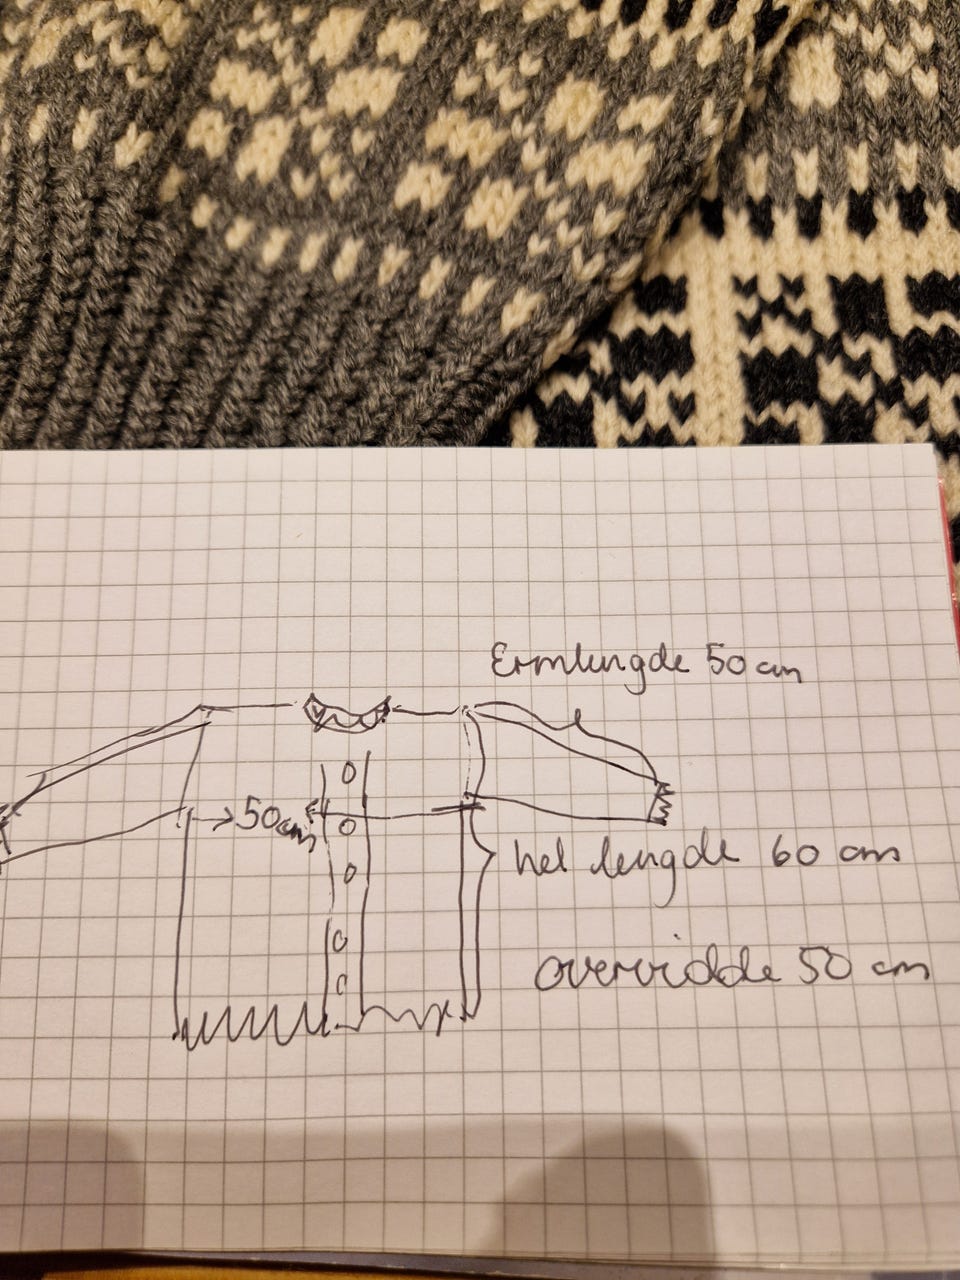 Ermlengde 50 cm
50cm
hel lengde 60 cm
overvidde 50 cm